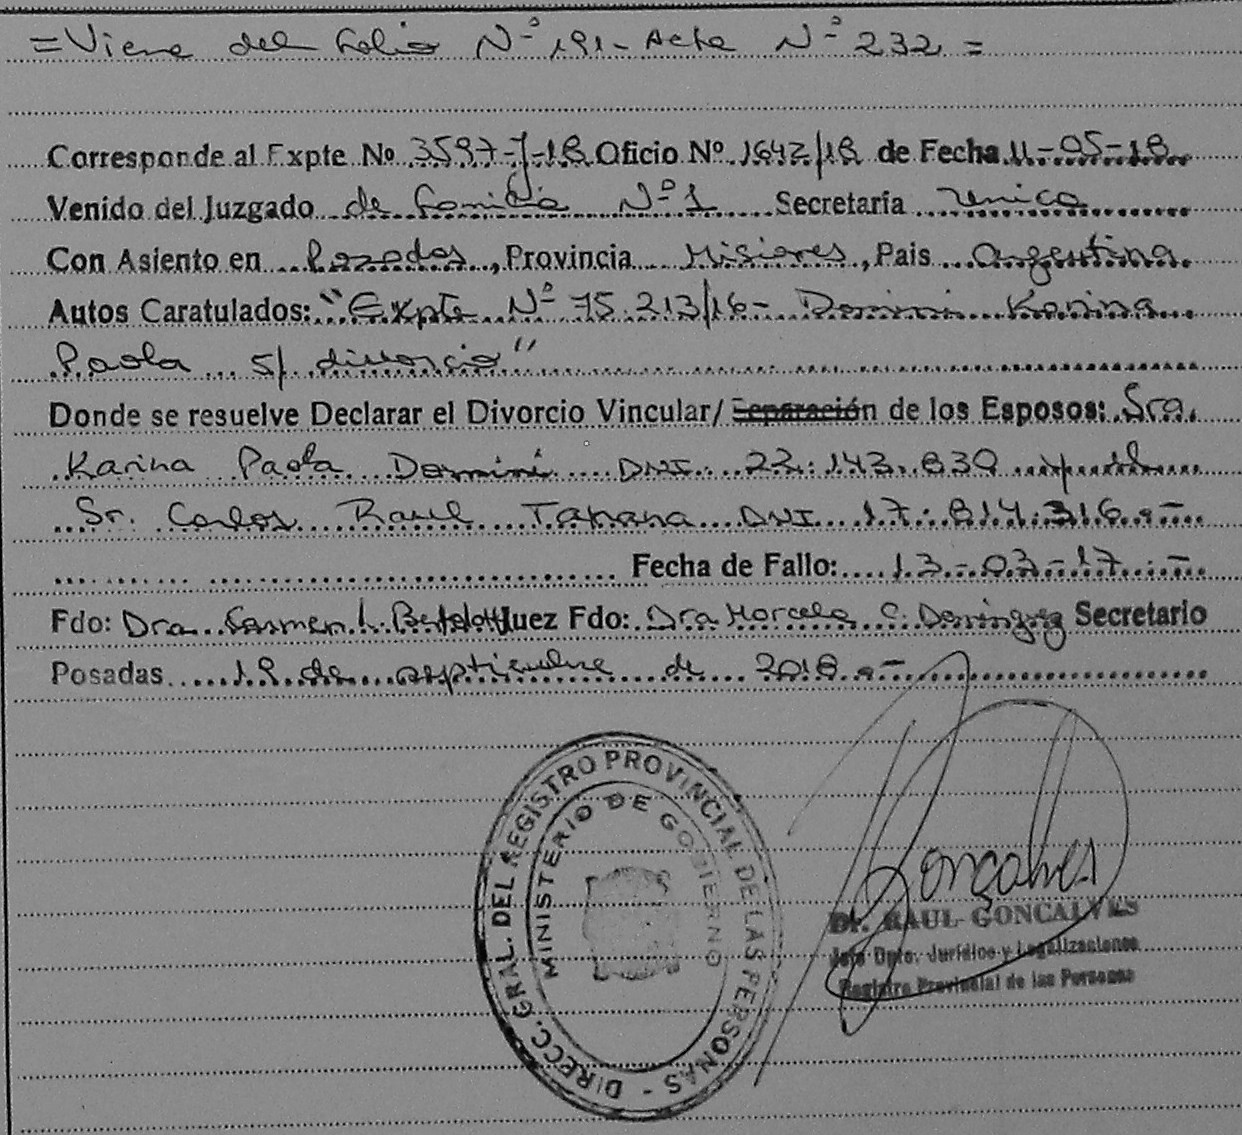 =Viene del Folio Nº 191- Acta Nº 232 =
Corresponde al Expte Nº 3597-J-18 Oficio Nº 1642/18 de Fecha 11-05-18
Venido del Juzgado de Familia Nº 1 Secretaría Unica
Con Asiento en Posadas, Provincia Misiones, País Argentina
Autos Caratulados: "Expte Nº 75.213/16- Domini Karina
Paola s/ divorcio"
Donde se resuelve Declarar el Divorcio Vincular/ Separación de los Esposos: Sra.
Karina Paola Domini DNI 22.143.830 y el
Sr. Carlos Raul Tanana DNI 17.814.316.-
Fecha de Fallo: 13-03-17.-
Fdo: Dra. Carmen L. Juez Fdo: Dra Marcela C. Dominguez Secretario
Posadas 19 de septiembre de 2018.-
DIRECC. GRAL. DEL REGISTRO PROVINCIAL DE LAS PERSONAS -
MINISTERIO DE GOBIERNO
Gonçalves
Dr. RAUL GONCALVES
Jefe Dpto. Jurídico y Legalizaciones
Registro Provincial de las Personas